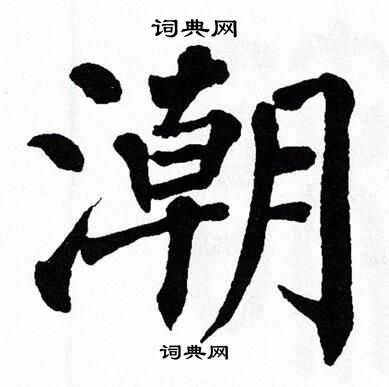 词典网
潮
词典网